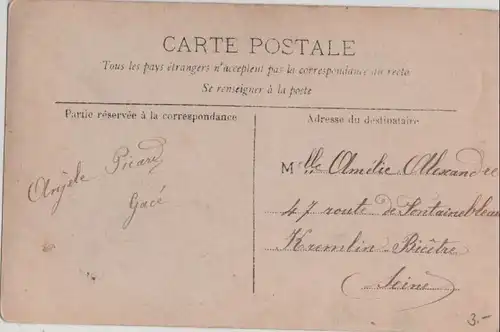 CARTE POSTALE
Tous les pays étrangers n'acceptent pas la correspondance au recto
Se renseigner à la poste
Partie réservée à la correspondance
Angèle Picard
Gacé
Adresse du destinataire
Mlle Amélie Alexandre
47 route de Fontainebleau
Kremlin Bicêtre
(Seine)
3.-